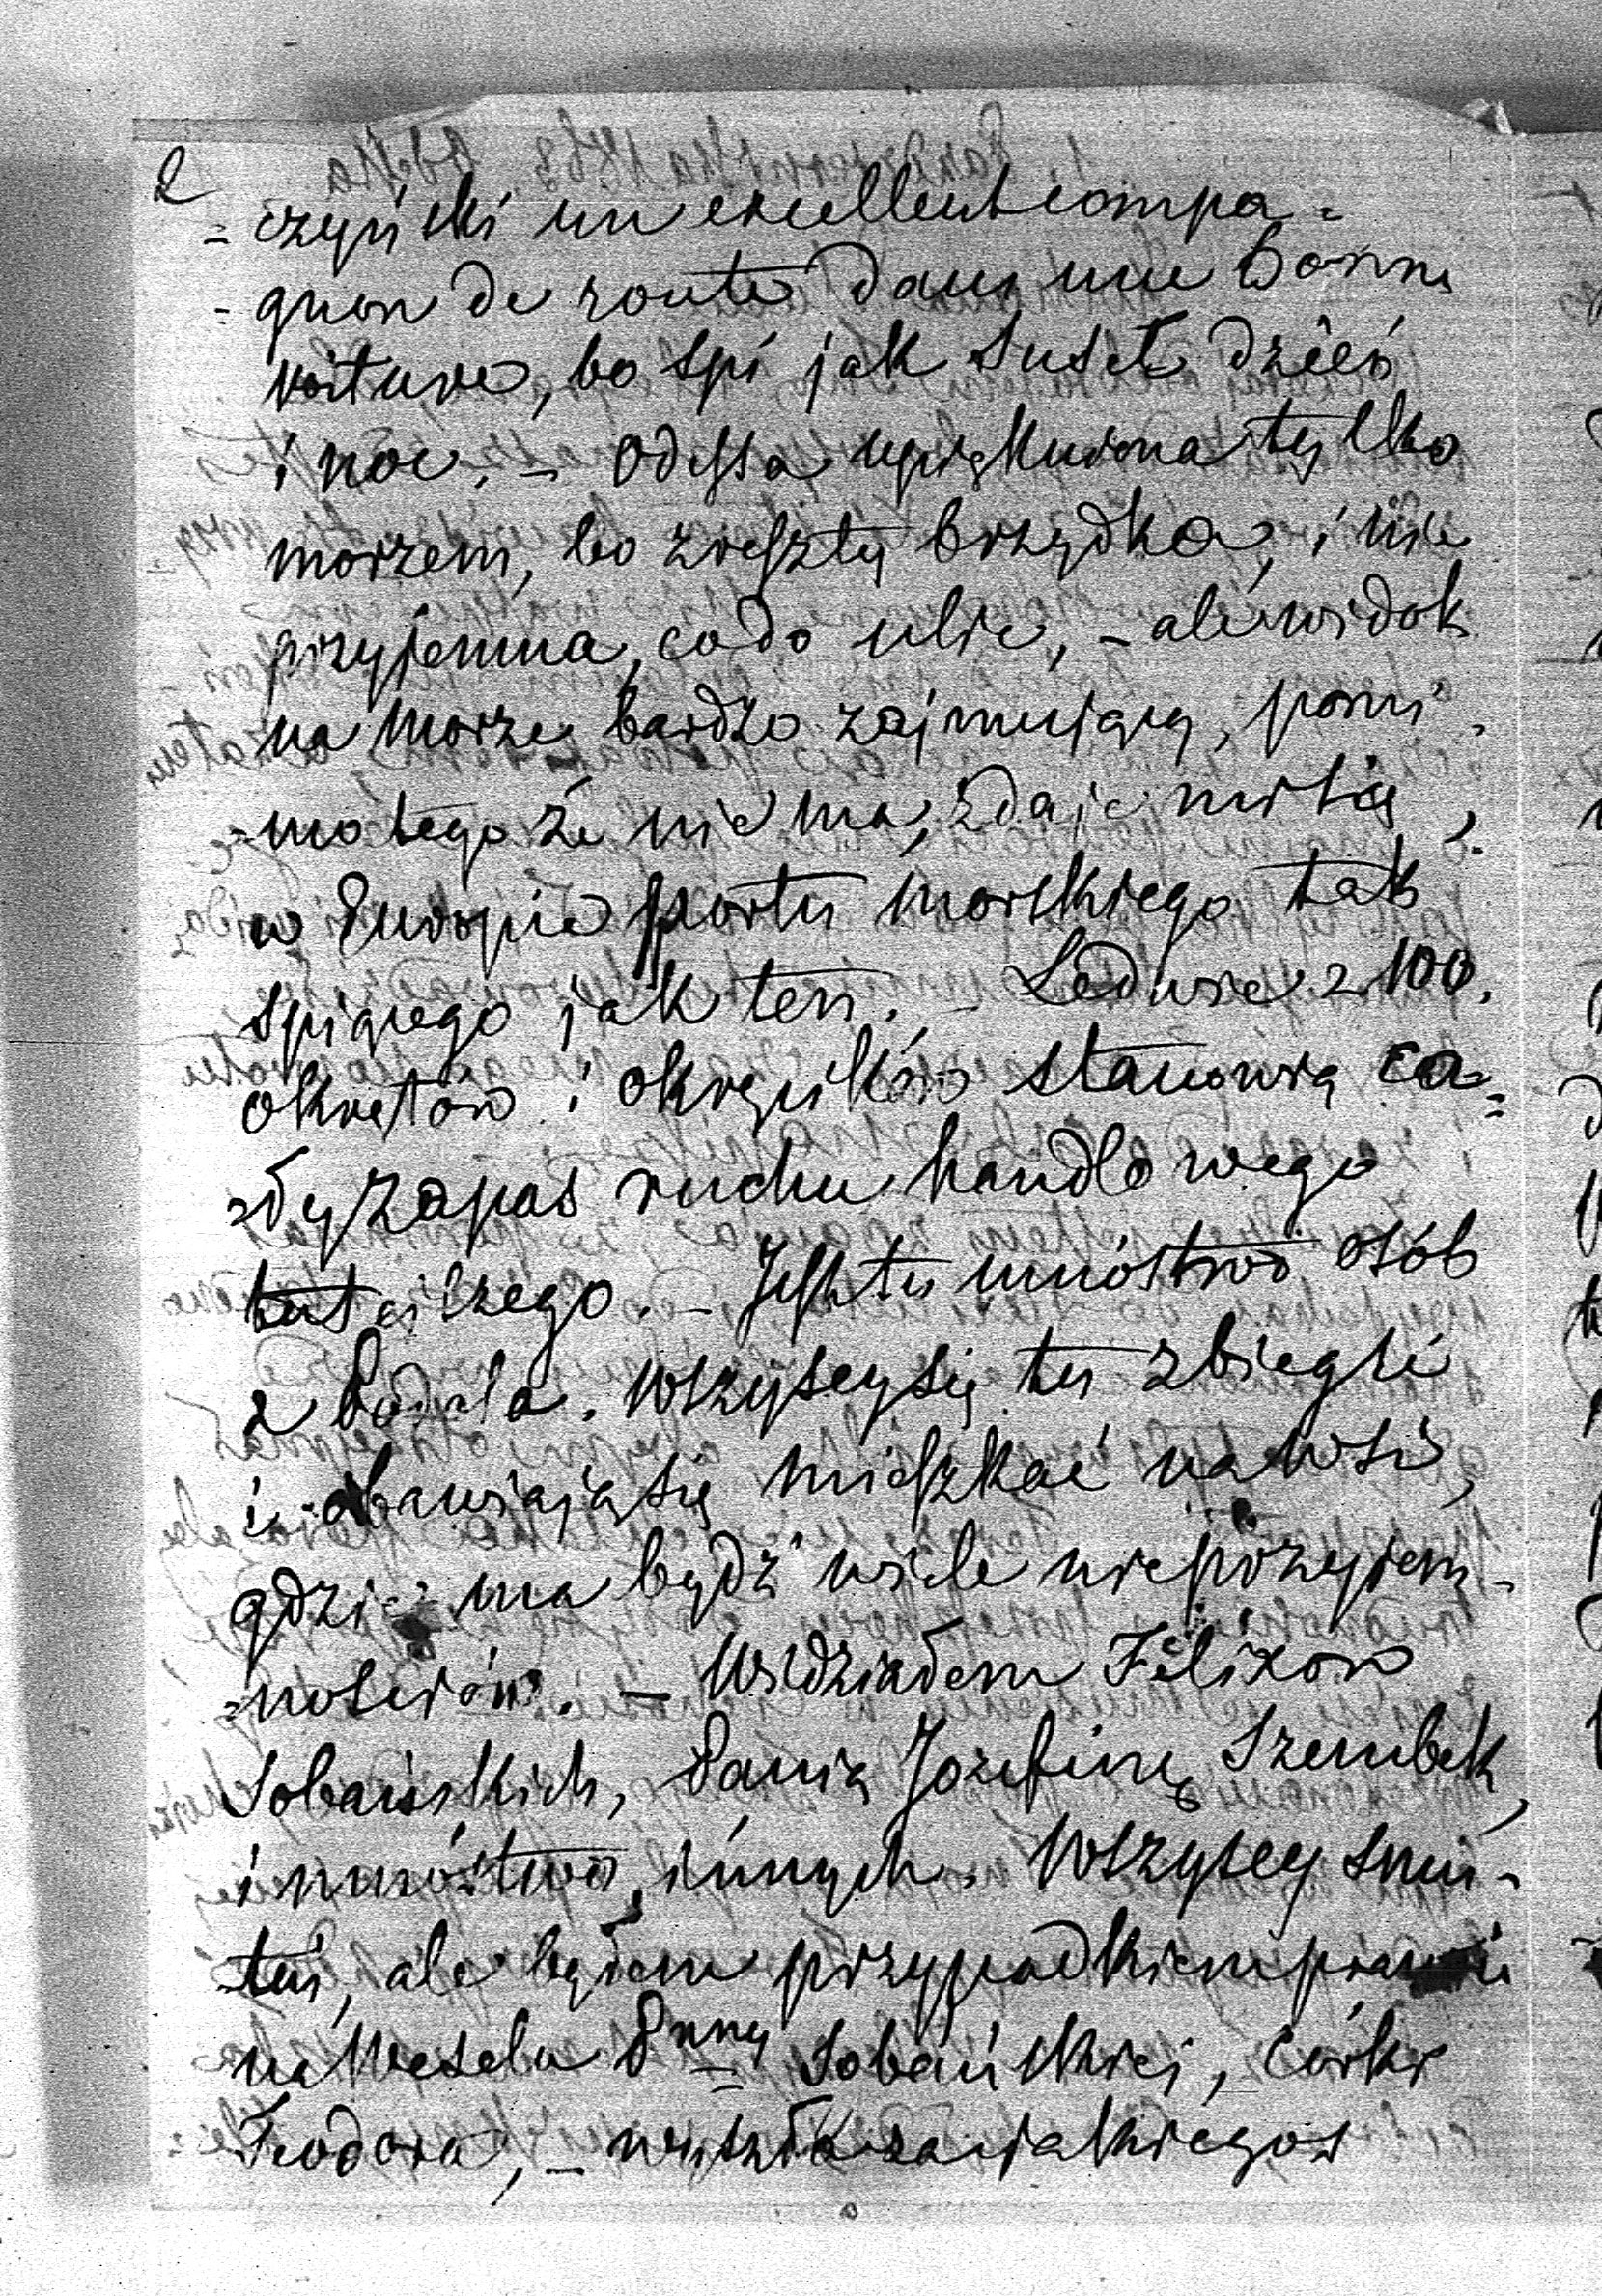 2
= czyński un excellent compa =
= gnon de route dans une bonne
voiture, bo śpi jak suseł dzień
i noc. – Odessa upiękniona tylko
morzem, bo zresztą brzydka, i nie
przyjemna, co do ulic, – ale widok
na morze bardzo zajmujący, pomi =
= mo tego że nie ma, zdaje mi się,
w Europie portu morskiego tak
śpiącego jak ten. – Ledwie z 100.
okrętów i okręcików stanowią ca =
= ły zapas ruchu handlowego
tutejszego. – Jest tu mnóstwo osób
z Podola. Wszyscy się tu zbiegli
i obawiają się mieszkać na wsi,
gdzie ma bydź wiele nieprzyjem =
= nościów. – Widziałem Felixow
Sobańskich, Panią Jozefinę Szembek,
i mnóstwo innych. Wszyscy smu =
tni, ale byłem przypadkiem prawie
na weselu Pnny Sobańskiej, córki
Teodora, – wyszła za jakiegoś